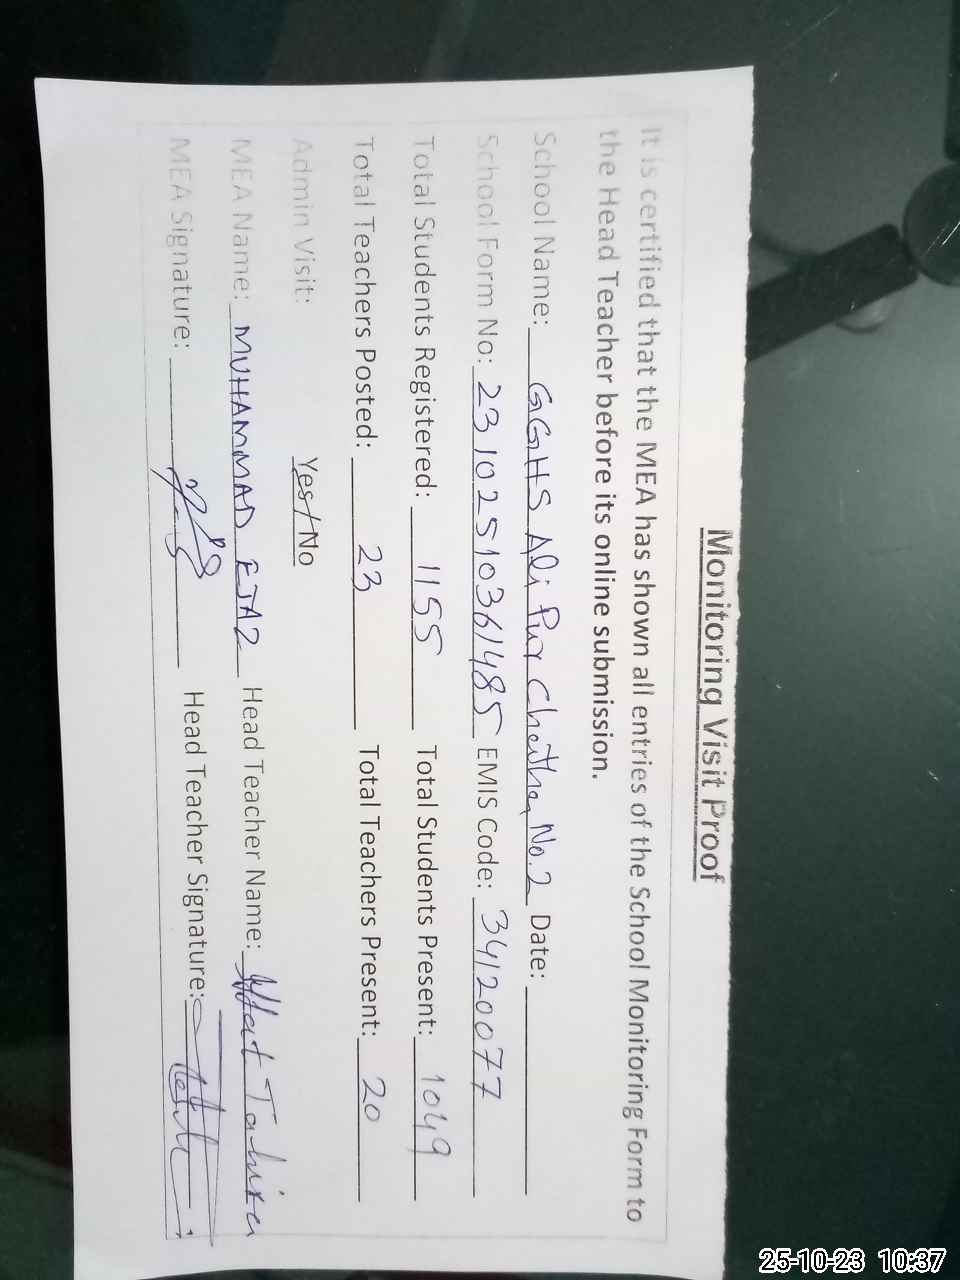 Monitoring Visit Proof
It is certified that the MEA has shown all entries of the School Monitoring Form to
the Head Teacher before its online submission.
School Name: GGHS Ali Pur Chatha No.2 Date:
School Form No: 23102510361485 EMIS Code: 34120077
Total Students Registered: 1155 Total Students Present: 1049
Total Teachers Posted: 23 Total Teachers Present: 20
Admin Visit: Yes/No
MEA Name: MUHAMMAD EJAZ Head Teacher Name: Tahira
MEA Signature: Head Teacher Signature:
25-10-23 10:37